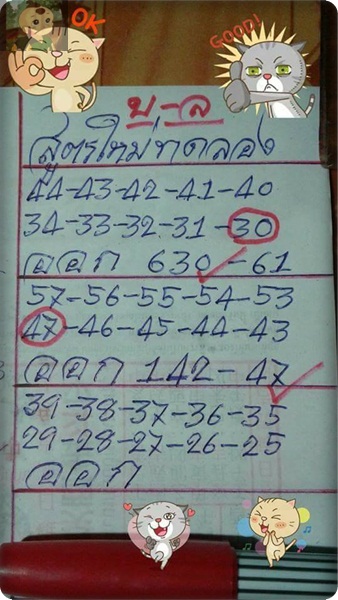 OK
GOOD!
บ-ล
สูตรใหม่ทดลอง
44-43-42-41-40
34-33-32-31-30
ออก 630-61
57-56-55-54-53
47-46-45-44-43
ออก 142-47
39-38-37-36-35
29-28-27-26-25
ออก